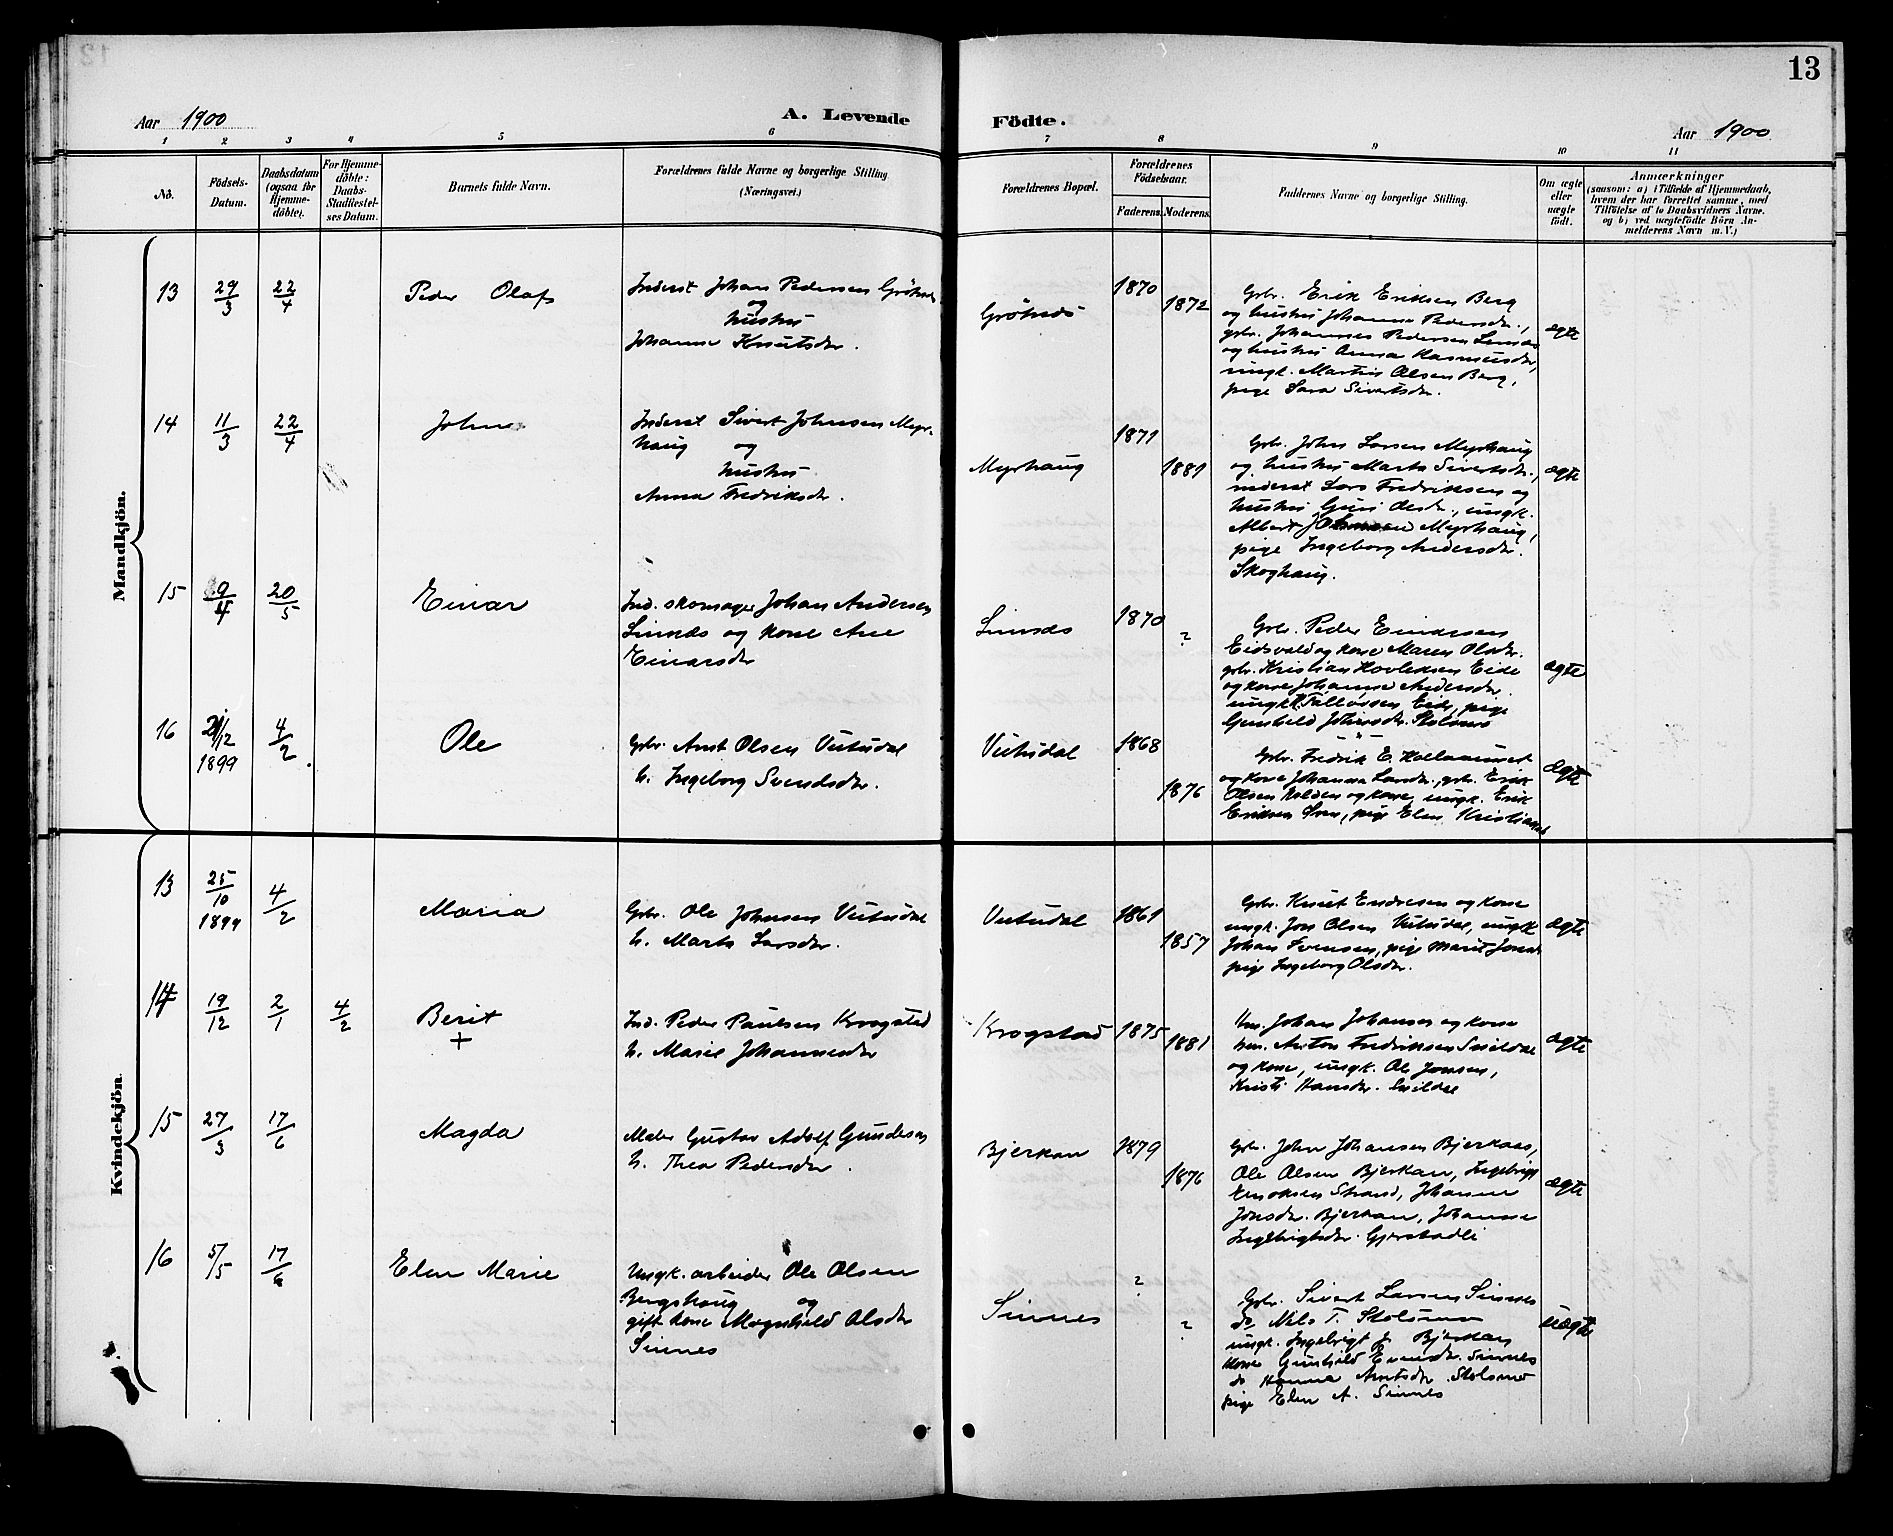 13
Aar 1900
A. Levende
Födte.
Aar 1900
1 2 3 4 5 6 7 8 9 10 11
No.
Födsels-
Datum.
Daabsdatum
(ogsaa for
Hjemme-
döbte).
For Hjemme-
döbte:
Daabs-
Stadfæstel-
ses Datum.
Barnets fulde Navn.
Forældrenes fulde Navne og borgerlige Stilling
(Næringsvei.)
Forældrenes Bopæl.
Forældrenes
Födselsaar.
Faderens. Moderens.
Faddernes Navne og borgerlige Stilling.
Om ægte
eller
uægte
födt.
Anmærkninger
(saasom: a) i Tilfælde af Hjemmedaab,
hvem der har forrettet samme, med
Tilföielse af to Daabsvidners Navne.
og b) ved uægtefödte Börn An-
melderens Navn m. V.)
Mandkjön.
13
29/3
22/4
Peder Olaf
Inderst Johan Pedersen
og
hustru
Johanna Knutsdr.
1870
1872
Gbr. Erik Eriksen Berg
og hustru Johanna Pedersdr.,
gbr. Johannes Pedersen
og hustru Anna Rasmusdr,
ungk. Martin Olsen Berg,
pige Sara Sivertsdr.
ægte
14
11/3
22/4
John
Inderst Sivert Johnsen Myr-
haug og
hustru
Anna Fredriksdr.
Myrhaug
1871
1881
Gbr. John Larsen Myrhaug
og hustru Marta Sivertsdr.,
inderst Lars Fredriksen og
hustru Guri Olsdr., ungk.
Albert Johnsen Myrhaug,
pige Ingeborg Andersdr.
Skoghaug.
ægte
15
9/4
20/5
Einar
Ind. skomager Johan Andersen
og kone Ane
Einarsdr
1870
?
Gbr. Peder Endresen
Eidsvald og kone Maren Olsdr.
gbr. Kristian Eide
og kone Johanna Andersdr.
ungk. Eide, pige
Gunhild Johnsdr. Stolsmo
ægte
16
21/12
1899
4/2
Ole
Gbr. Arnt Olsen Vutudal
h. Ingeborg Svendsdr.
Vutudal
1868
1876
Gbr. Fredrik E.
og kone Johanna Larsdr., gbr. Erik
Olsen Holden og kone, ungk. Erik
Eriksen, pige Elen
ægte
Kvindekjön.
13
25/10
1899
4/2
Maria
Gbr. Ole Johnsen Vutudal
h. Marta Larsdr.
Vutudal
1861
1857
Gbr. Knut Endresen og kone
ungk. Jon Olsen Vutudal, ungk
Johan Svensen, pige Marit
pige Ingeborg Olsdr.
ægte
14
19/12
2/1
4/2
Berit
+
Ind. Peder Paulsen Krogstad
h. Marie Johannesdr
Krogstad
1875
1881
Hm. Johan Johansen og kone
hm. Anton Fredriksen Snildal
og kone, ungk. Ole Jonsen,
Kristi Hansdr. Snildal
ægte
15
27/3
17/6
Magda
Maler Gustav Adolf Gundersen
h. Thea Pedersdr.
Bjerkan
1879
1876
Gbr. John Johansen Bjerkaas,
Ole Olsen Bjerkan, Ingebrigt
Enoksen Strand, Johanna
Jonsdr. Bjerkan, Johanna
Ingebrigtsdr. Gjerstadli
ægte
16
5/5
17/6
Elen Marie
Ungk. arbeider Ole Olsen
Bergshaug og
gift kone Magnhild Olsdr
Sinnes
Sinnes
?
?
Gbr. Sivert Larsen Sinnes
do. Nels T. Stolsmo
ungk. Ingebrigt J. Bjerkan
kone Gunhild Evensdr. Sinnes
do Hanna Arntsdr. Stolsmo
pige Elen A. Sinnes
uægte